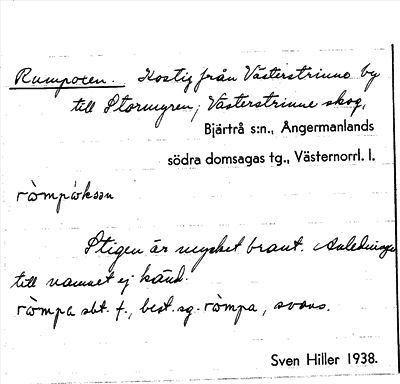 Rumpoxen. Kostig från Västerstrinne by
till Stormyren, Västerstrinne skog,
Bjärtrå s:n., Ångermanlands
södra domsagas tg., Västernorrl. l.
ròmpóksan
Stigen är mycket brant. Anledningen
till namnet ej känd.
ròmpa sbt. f., best. sg. ròmpa, svans.
Sven Hiller 1938.